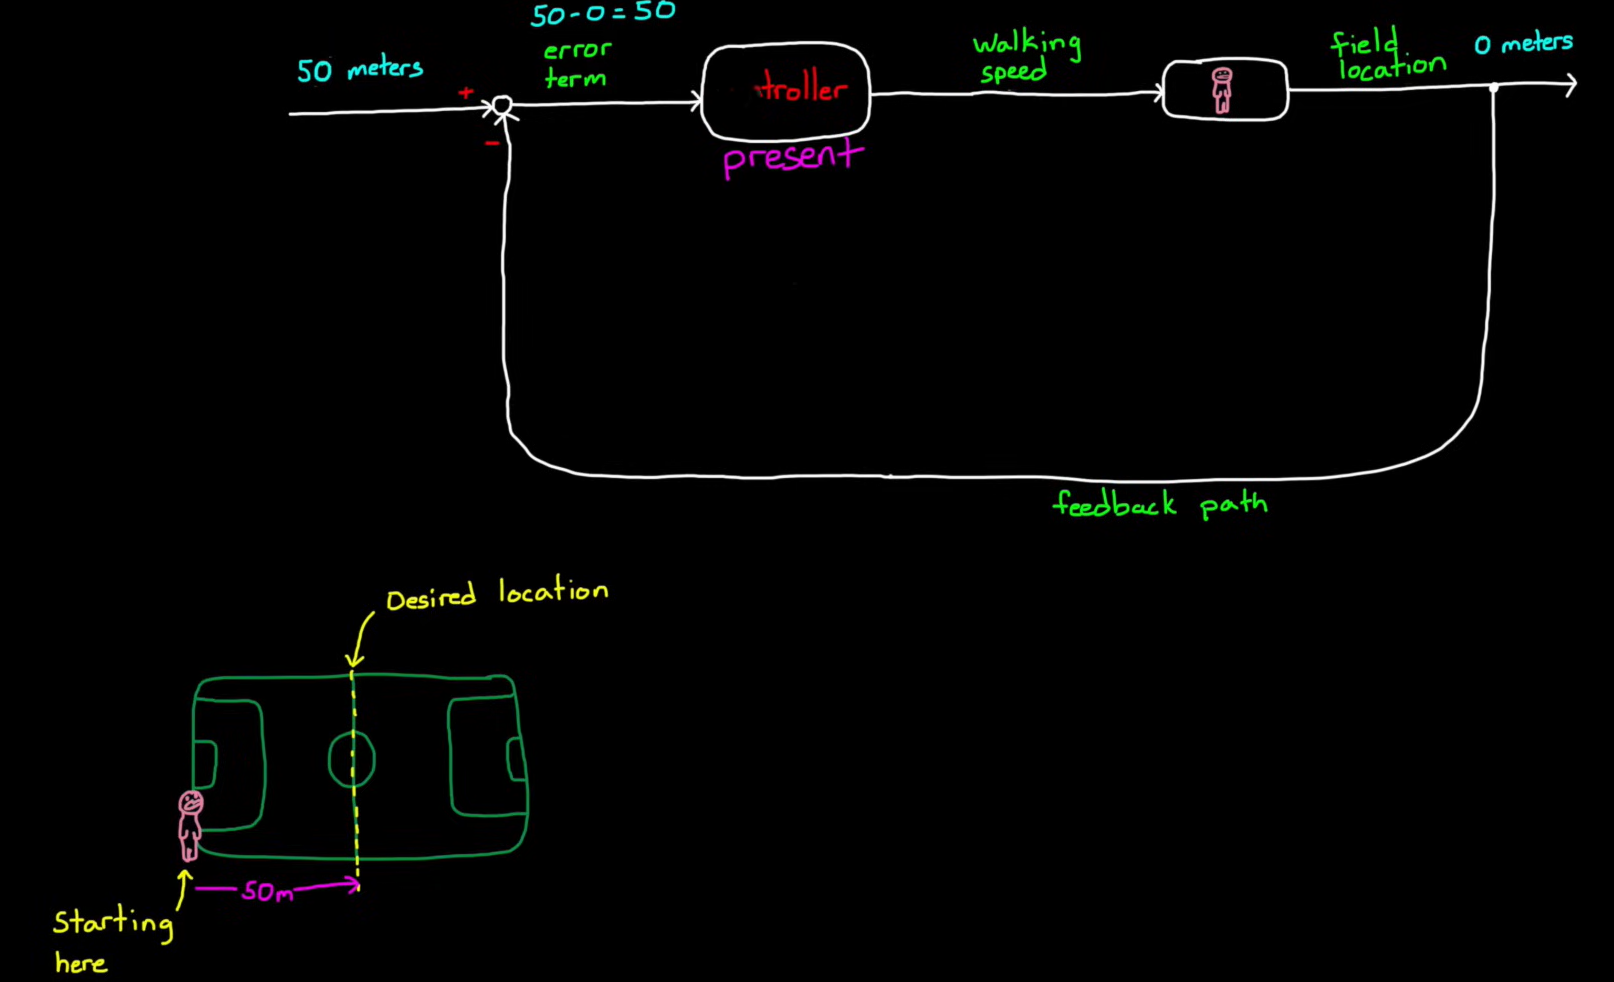 50-0=50
error
term
50 meters
+
-
troller
present
walking
speed
field
location
0 meters
feedback path
Desired location
50m
Starting
here